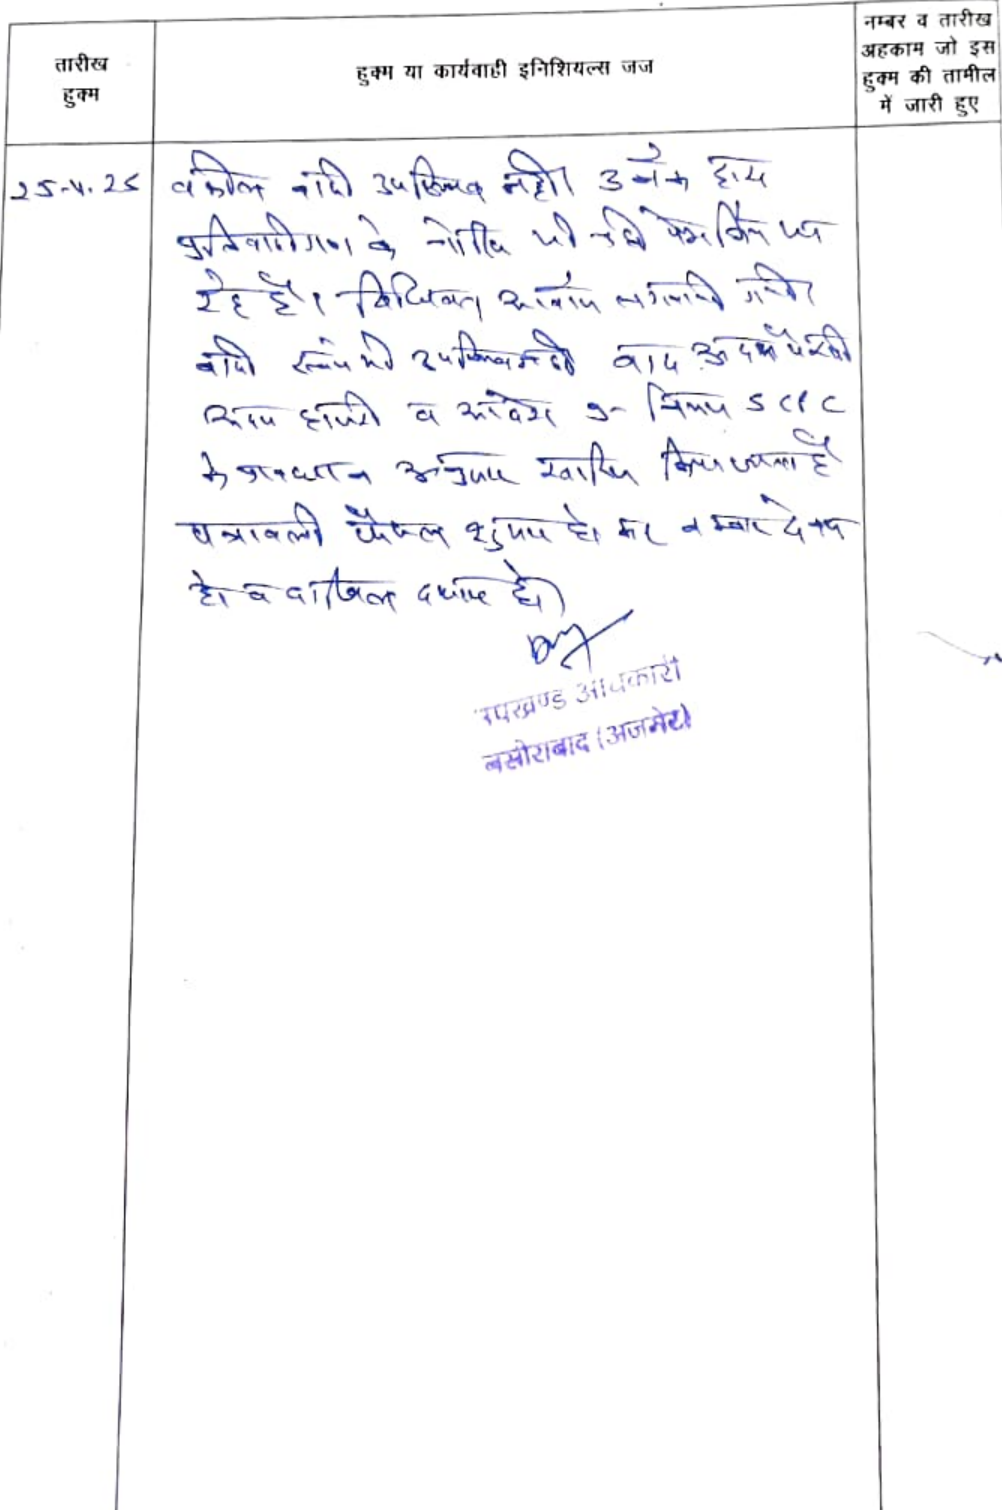 तारीख
हुक्म
हुक्म या कार्यवाही इनिशियल्स जज
नम्बर व तारीख
अहकाम जो इस
हुक्म की तामील
में जारी हुए
25-4-25 वकील वादी उपस्थित नही। उनके द्वारा
प्रतिवादीगण के नोटिस भी नही पेश किये जा
रहे है। विधिवत आवाज लगवायी गयी।
वादी स्वंय भी उपस्थित नही वाद अदम पैरवी
अदम हाजरी व आदेश 9 नियम 5 CPC
के प्रावधान अनुसार खारिज किया जाता है
पत्रावली फैसल शुमार हो कर नम्बर से कम
हो व दाखिल दफ्तर हो।
उपखण्ड अधिकारी
नसीराबाद (अजमेर)